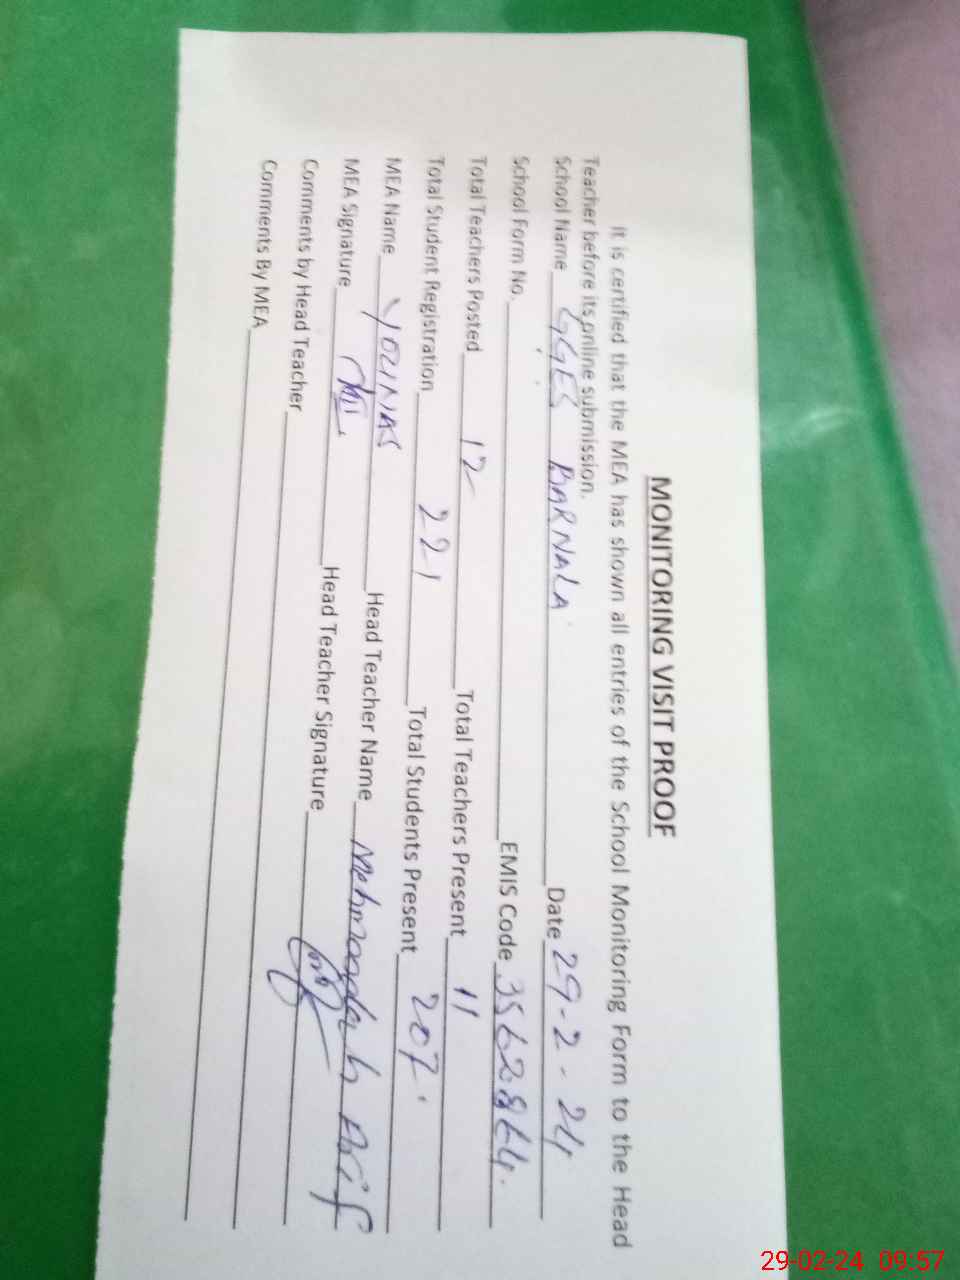 MONITORING VISIT PROOF
It is certified that the MEA has shown all entries of the School Monitoring Form to the Head
Teacher before its online submission.
School Name GGES BARNALA Date 29-2-24
School Form No. EMIS Code 35628864.
Total Teachers Posted 12 Total Teachers Present 11
Total Student Registration 221 Total Students Present 207
MEA Name YOUNAS Head Teacher Name Mehmoodah Asif
MEA Signature Head Teacher Signature
Comments by Head Teacher
Comments By MEA
29-02-24 09:57